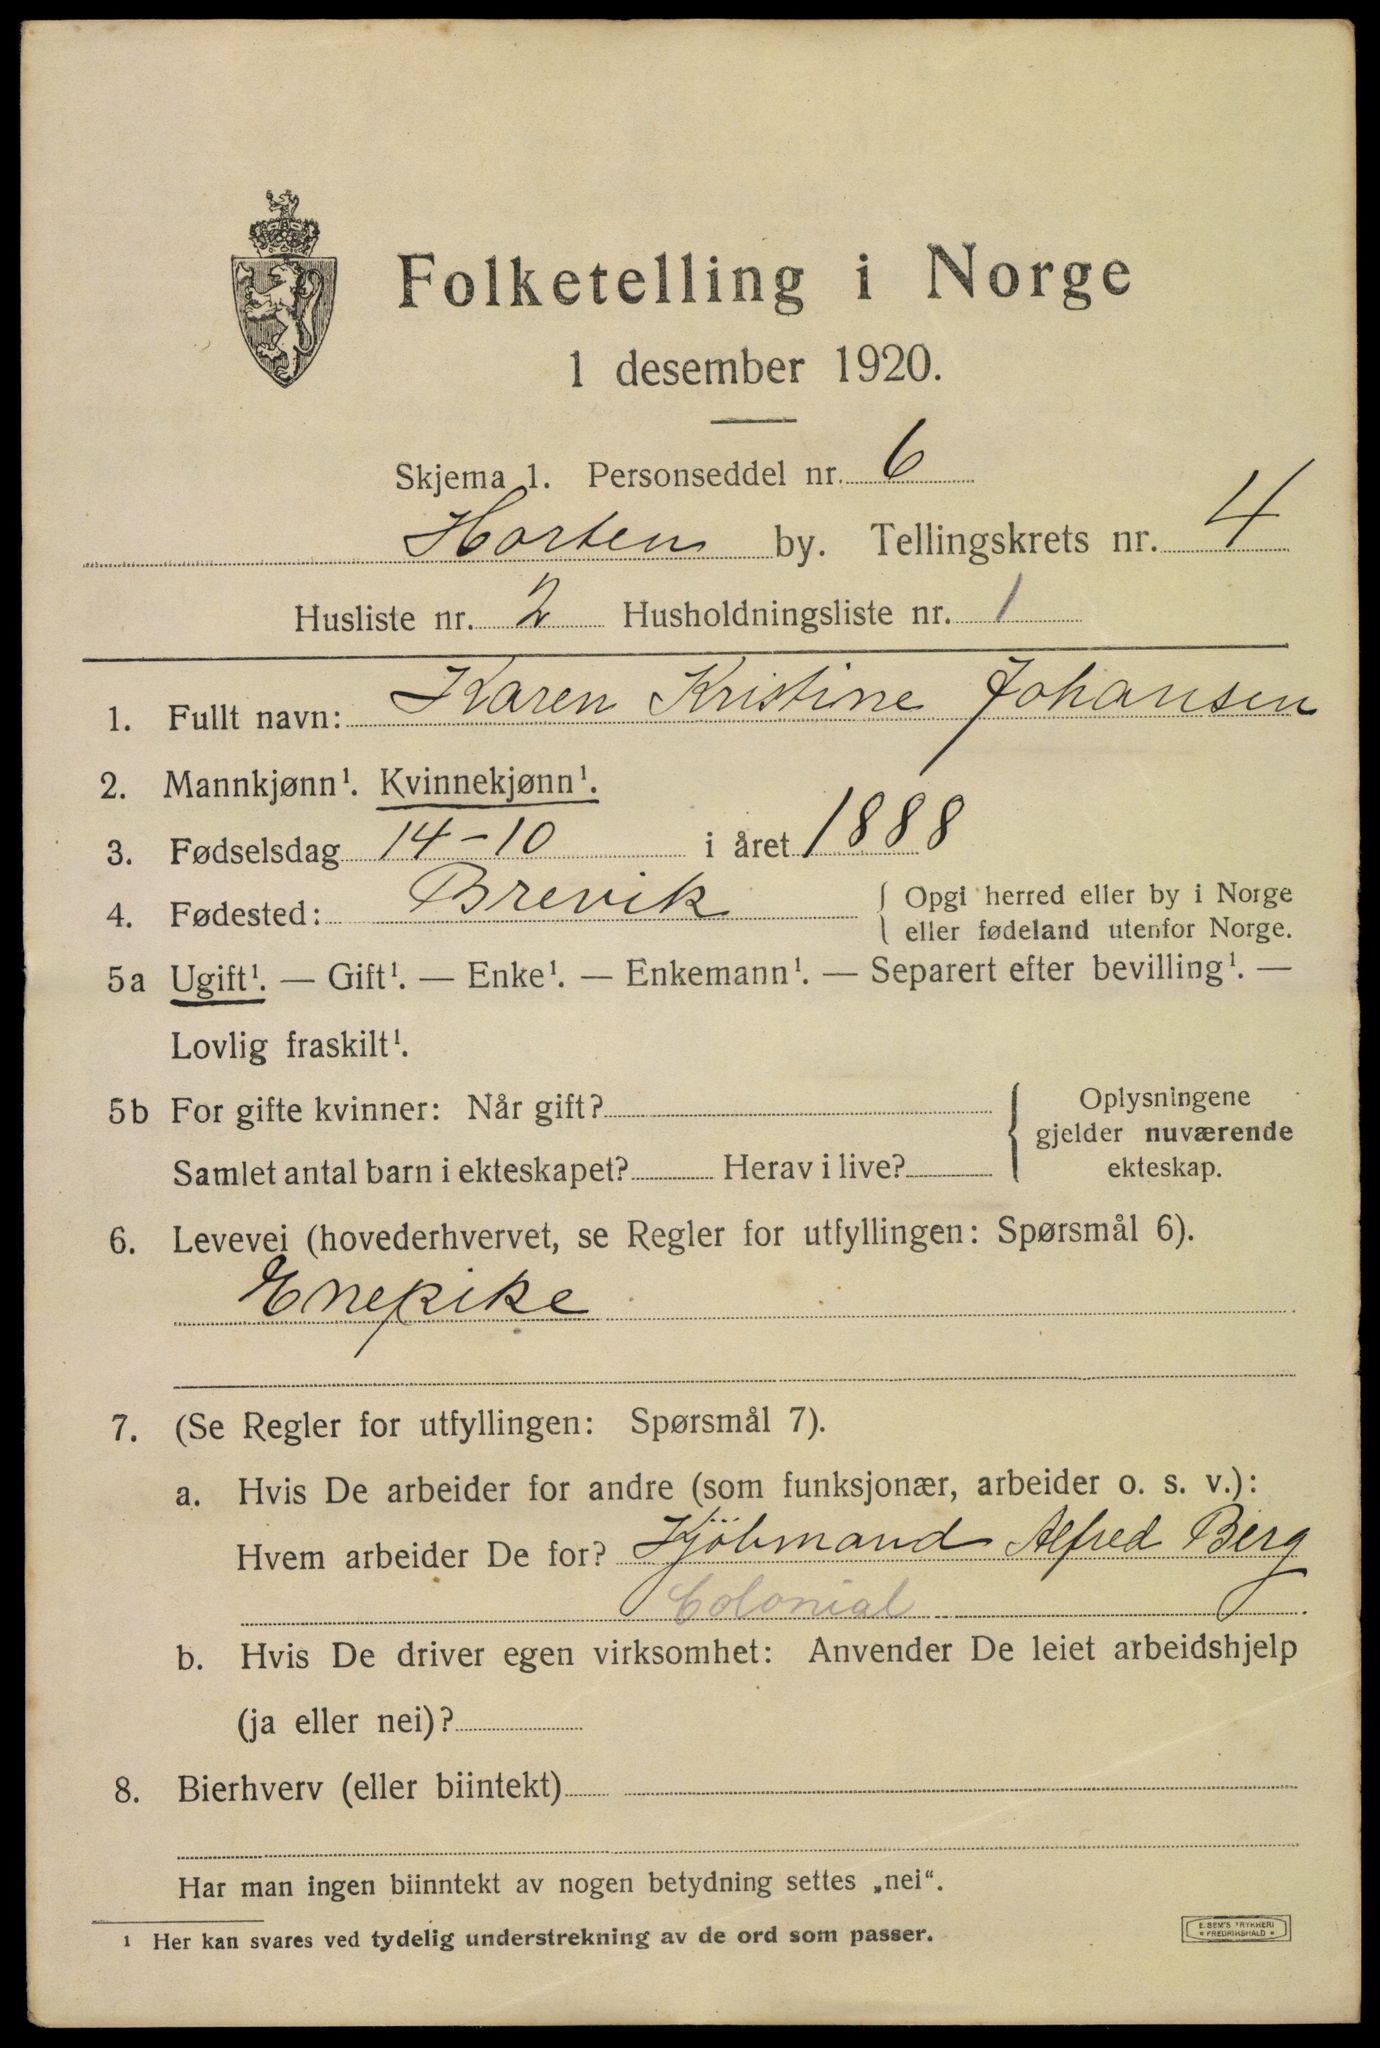 Folketelling i Norge
1 desember 1920.
Skjema 1. Personseddel nr. 6
Horten by. Tellingskrets nr. 4
Husliste nr. 2 Husholdningsliste nr. 1
1. Fullt navn: Karen Kristine Johansen
2. Mannkjønn¹. Kvinnekjønn¹.
3. Fødselsdag 14-10 i året 1888
4. Fødested: Brevik { Opgi herred eller by i Norge
eller fødeland utenfor Norge.
5a Ugift¹. — Gift¹. — Enke¹. — Enkemann¹. — Separert efter bevilling¹. —
Lovlig fraskilt¹.
5b For gifte kvinner: Når gift? { Oplysningene
gjelder nuværende
Samlet antal barn i ekteskapet? Herav i live? ekteskap.
6. Levevei (hovederhvervet, se Regler for utfyllingen: Spørsmål 6).
7. (Se Regler for utfyllingen: Spørsmål 7).
a. Hvis De arbeider for andre (som funksjonær, arbeider o. s. v.):
Hvem arbeider De for? Kjöbmand Alfred Berg
Colonial
b. Hvis De driver egen virksomhet: Anvender De leiet arbeidshjelp
(ja eller nei)?
8. Bierhverv (eller biintekt)
Har man ingen biinntekt av nogen betydning settes „nei“.
¹ Her kan svares ved tydelig understrekning av de ord som passer.
E. SEM'S TRYKKERI
* FREDRIKSHALD *